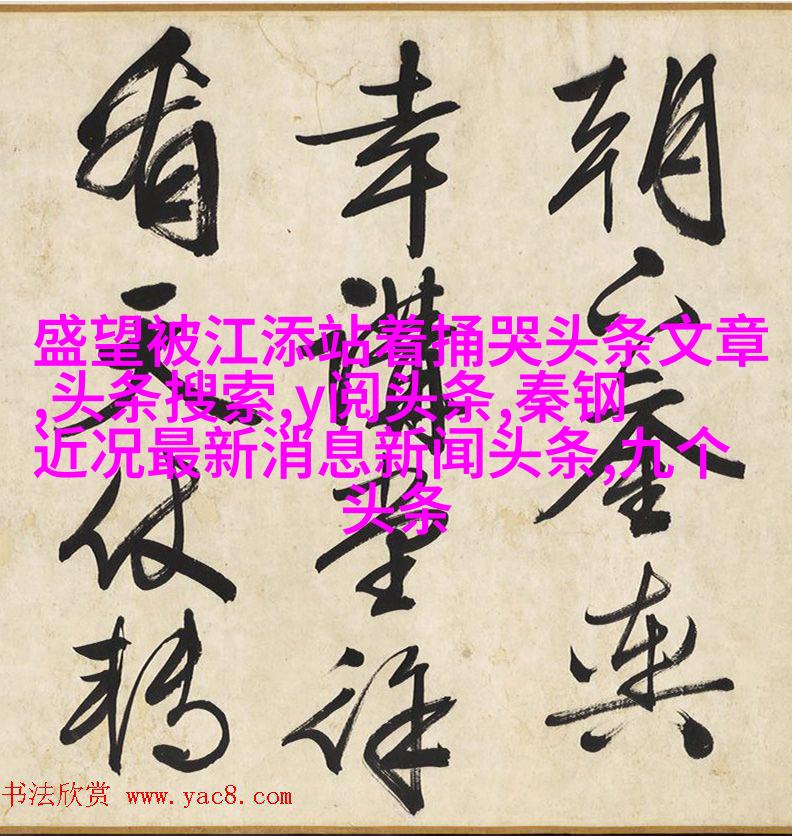 朝輿
幸講堂徐
看天仗轉
盛望被江添站着捅哭头条文章
,头条搜索,y阅头条,秦钢
近况最新消息新闻头条,九个
头条
书法欣赏 www.yac8.com